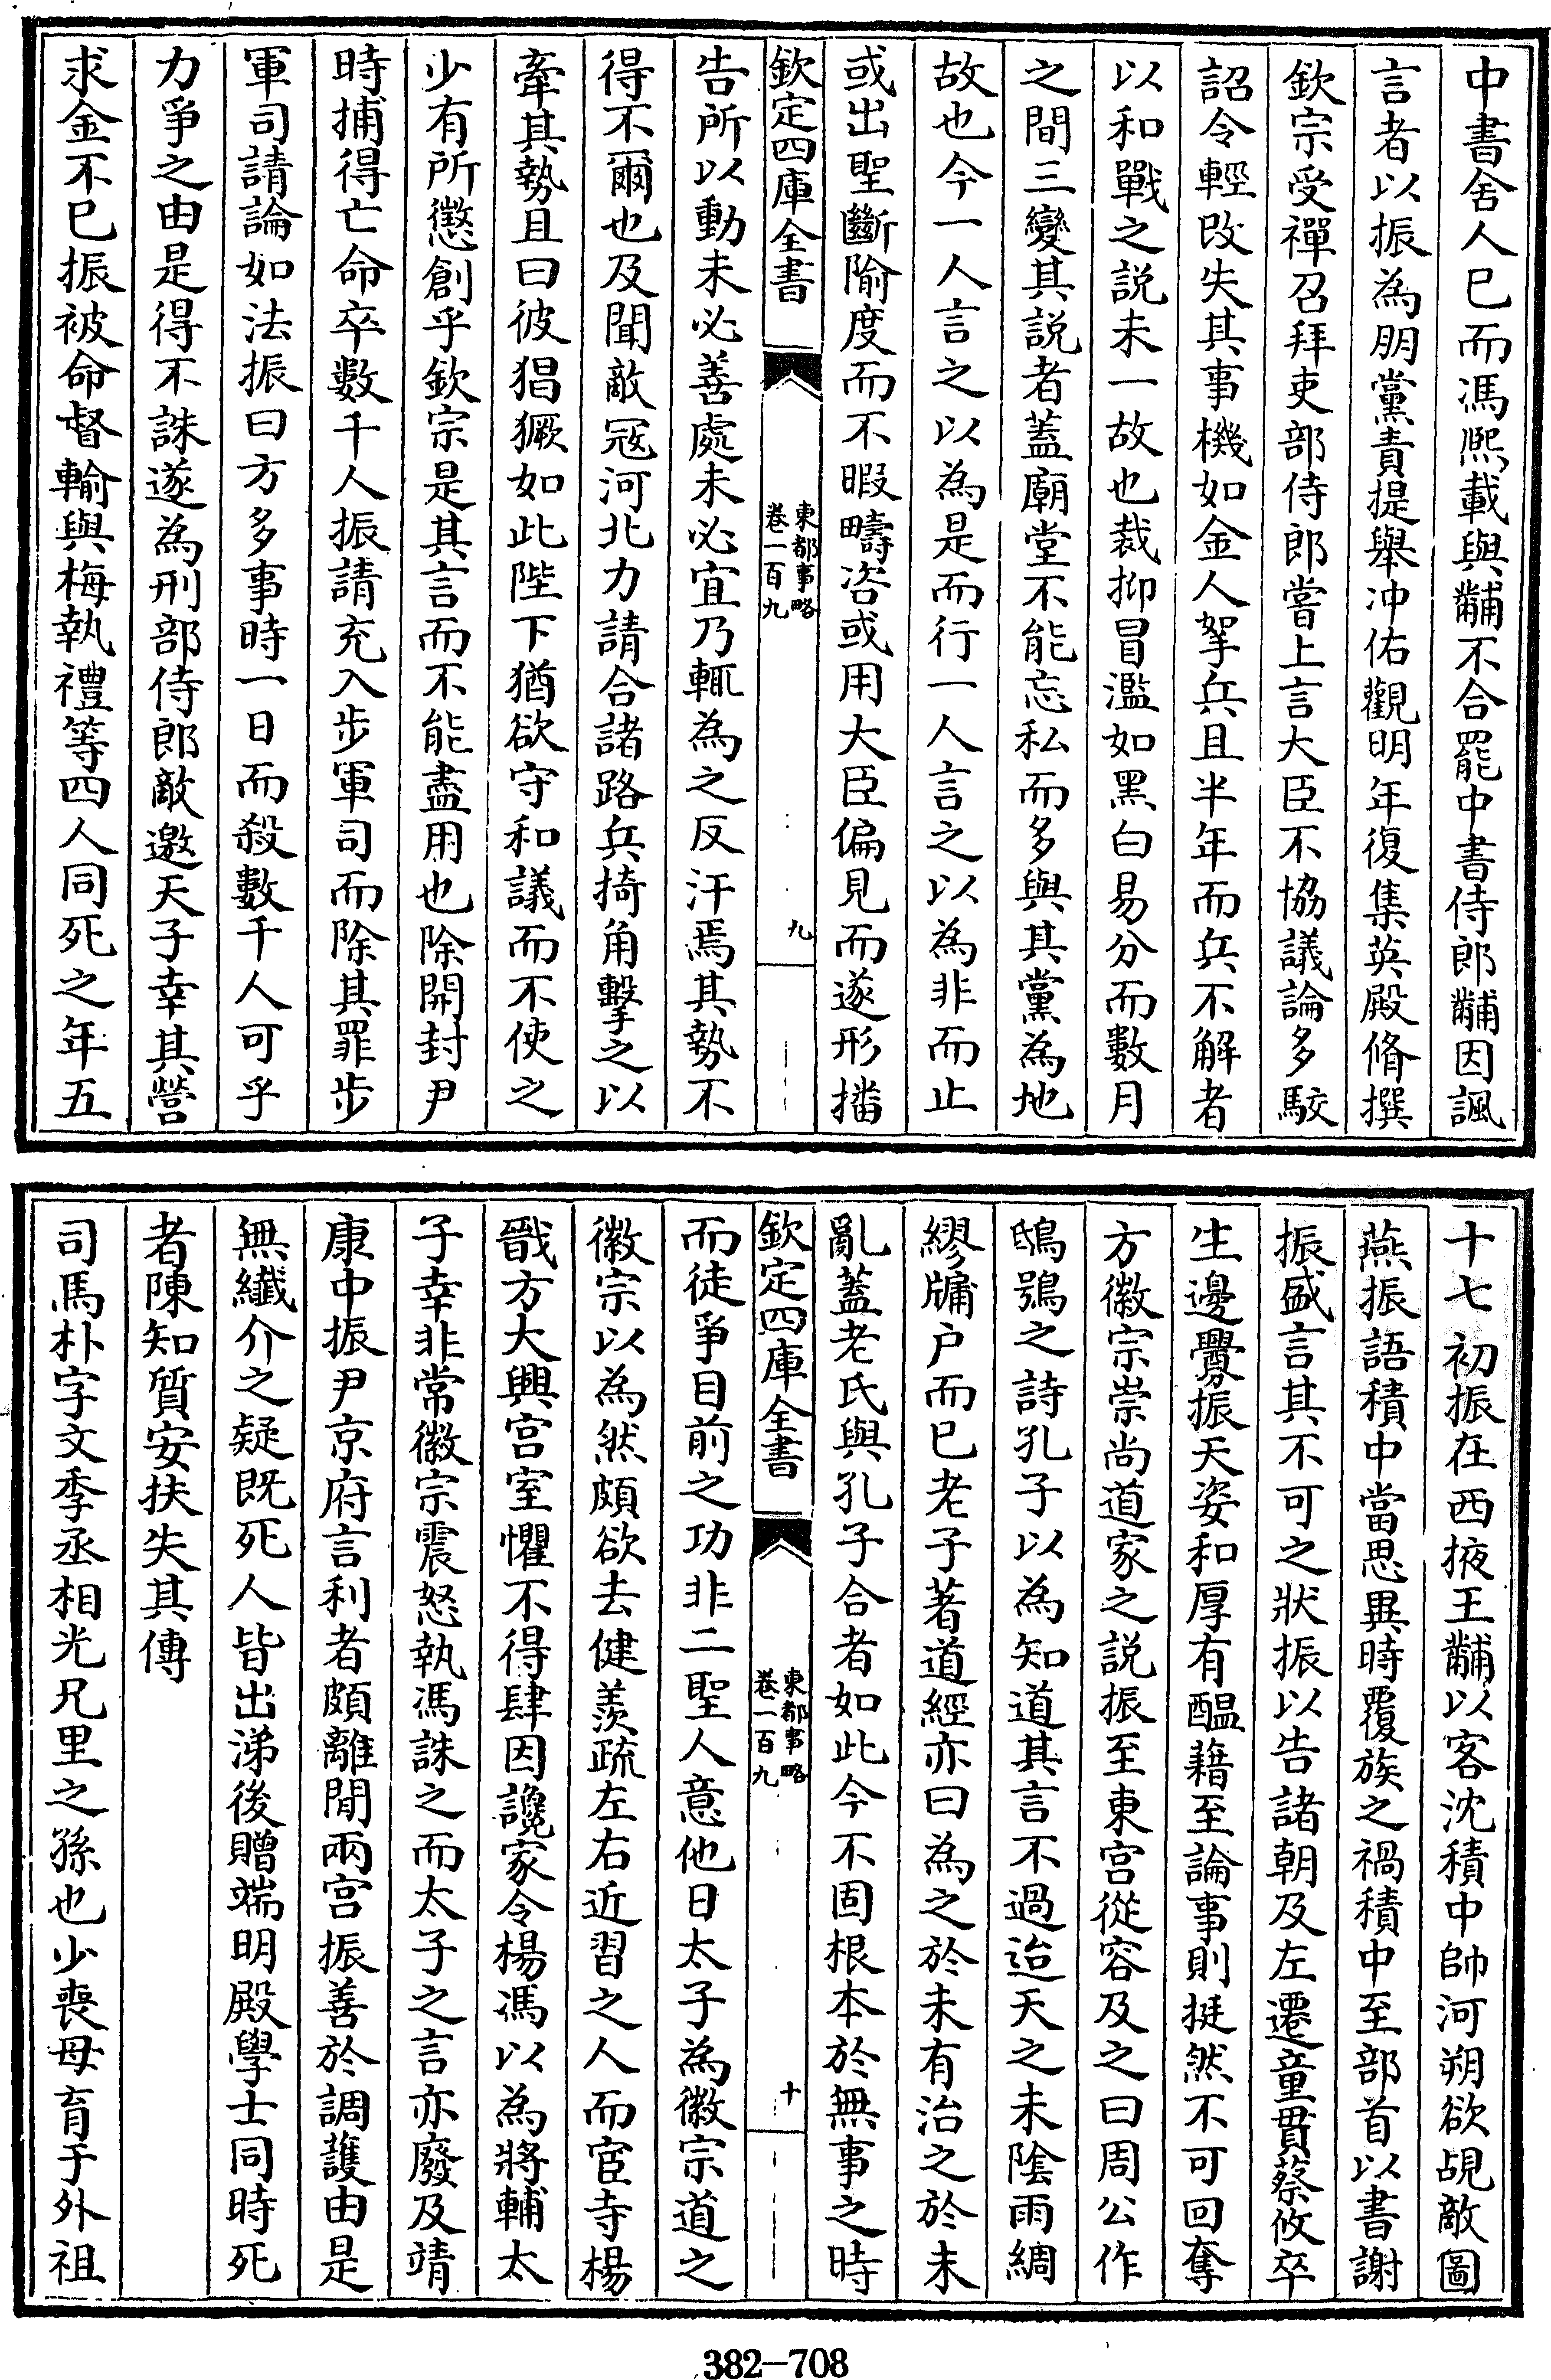 中書舍人已而馮熈載與黼不合罷中書侍郎黼因諷
言者以振為朋黨責提舉冲佑觀明年復集英殿脩撰
欽宗受禪召拜吏部侍郎嘗上言大臣不協議論多駮
詔令輕改失其事機如金人挐兵且半年而兵不解者
以和戰之説未一故也裁抑冒濫如黑白易分而數月
之間三變其説者蓋廟堂不能忘私而多與其黨為地
故也今一人言之以為是而行一人言之以為非而止
或出聖斷隃度而不暇疇咨或用大臣偏見而遂形播
欽定四庫全書
東都事略
卷一百九
九
告所以動未必善處未必宜乃輒為之反汗焉其勢不
得不爾也及聞敵冦河北力請合諸路兵掎角擊之以
牽其勢且曰彼猖獗如此陛下猶欲守和議而不使之
少有所懲創乎欽宗是其言而不能盡用也除開封尹
時捕得亡命卒數千人振請充入步軍司而除其罪步
軍司請論如法振曰方多事時一日而殺數千人可乎
力爭之由是得不誅遂為刑部侍郎敵邀天子幸其營
求金不已振被命督輸與梅執禮等四人同死之年五
十七初振在西掖王黼以客沈積中帥河朔欲覘敵圖
燕振語積中當思異時覆族之禍積中至部首以書謝
振盛言其不可之狀振以告諸朝及左遷童貫蔡攸卒
生邊釁振天姿和厚有醞藉至論事則挺然不可回奪
方徽宗崇尚道家之説振至東宮從容及之曰周公作
鴟鴞之詩孔子以為知道其言不過迨天之未陰雨綢
繆牖户而已老子著道經亦曰為之於未有治之於未
亂蓋老氏與孔子合者如此今不固根本於無事之時
欽定四庫全書
東都事略
卷一百九
十
而徒爭目前之功非二聖人意他日太子為徽宗道之
徽宗以為然頗欲去健羨疏左右近習之人而宦寺楊
戩方大興宫室懼不得肆因讒家令楊馮以為將輔太
子幸非常徽宗震怒執馮誅之而太子之言亦廢及靖
康中振尹京府言利者頗離間兩宫振善於調護由是
無纎介之疑既死人皆出涕後贈端明殿學士同時死
者陳知質安扶失其傳
司馬朴字文季丞相光兄里之孫也少喪母育于外祖
382-708